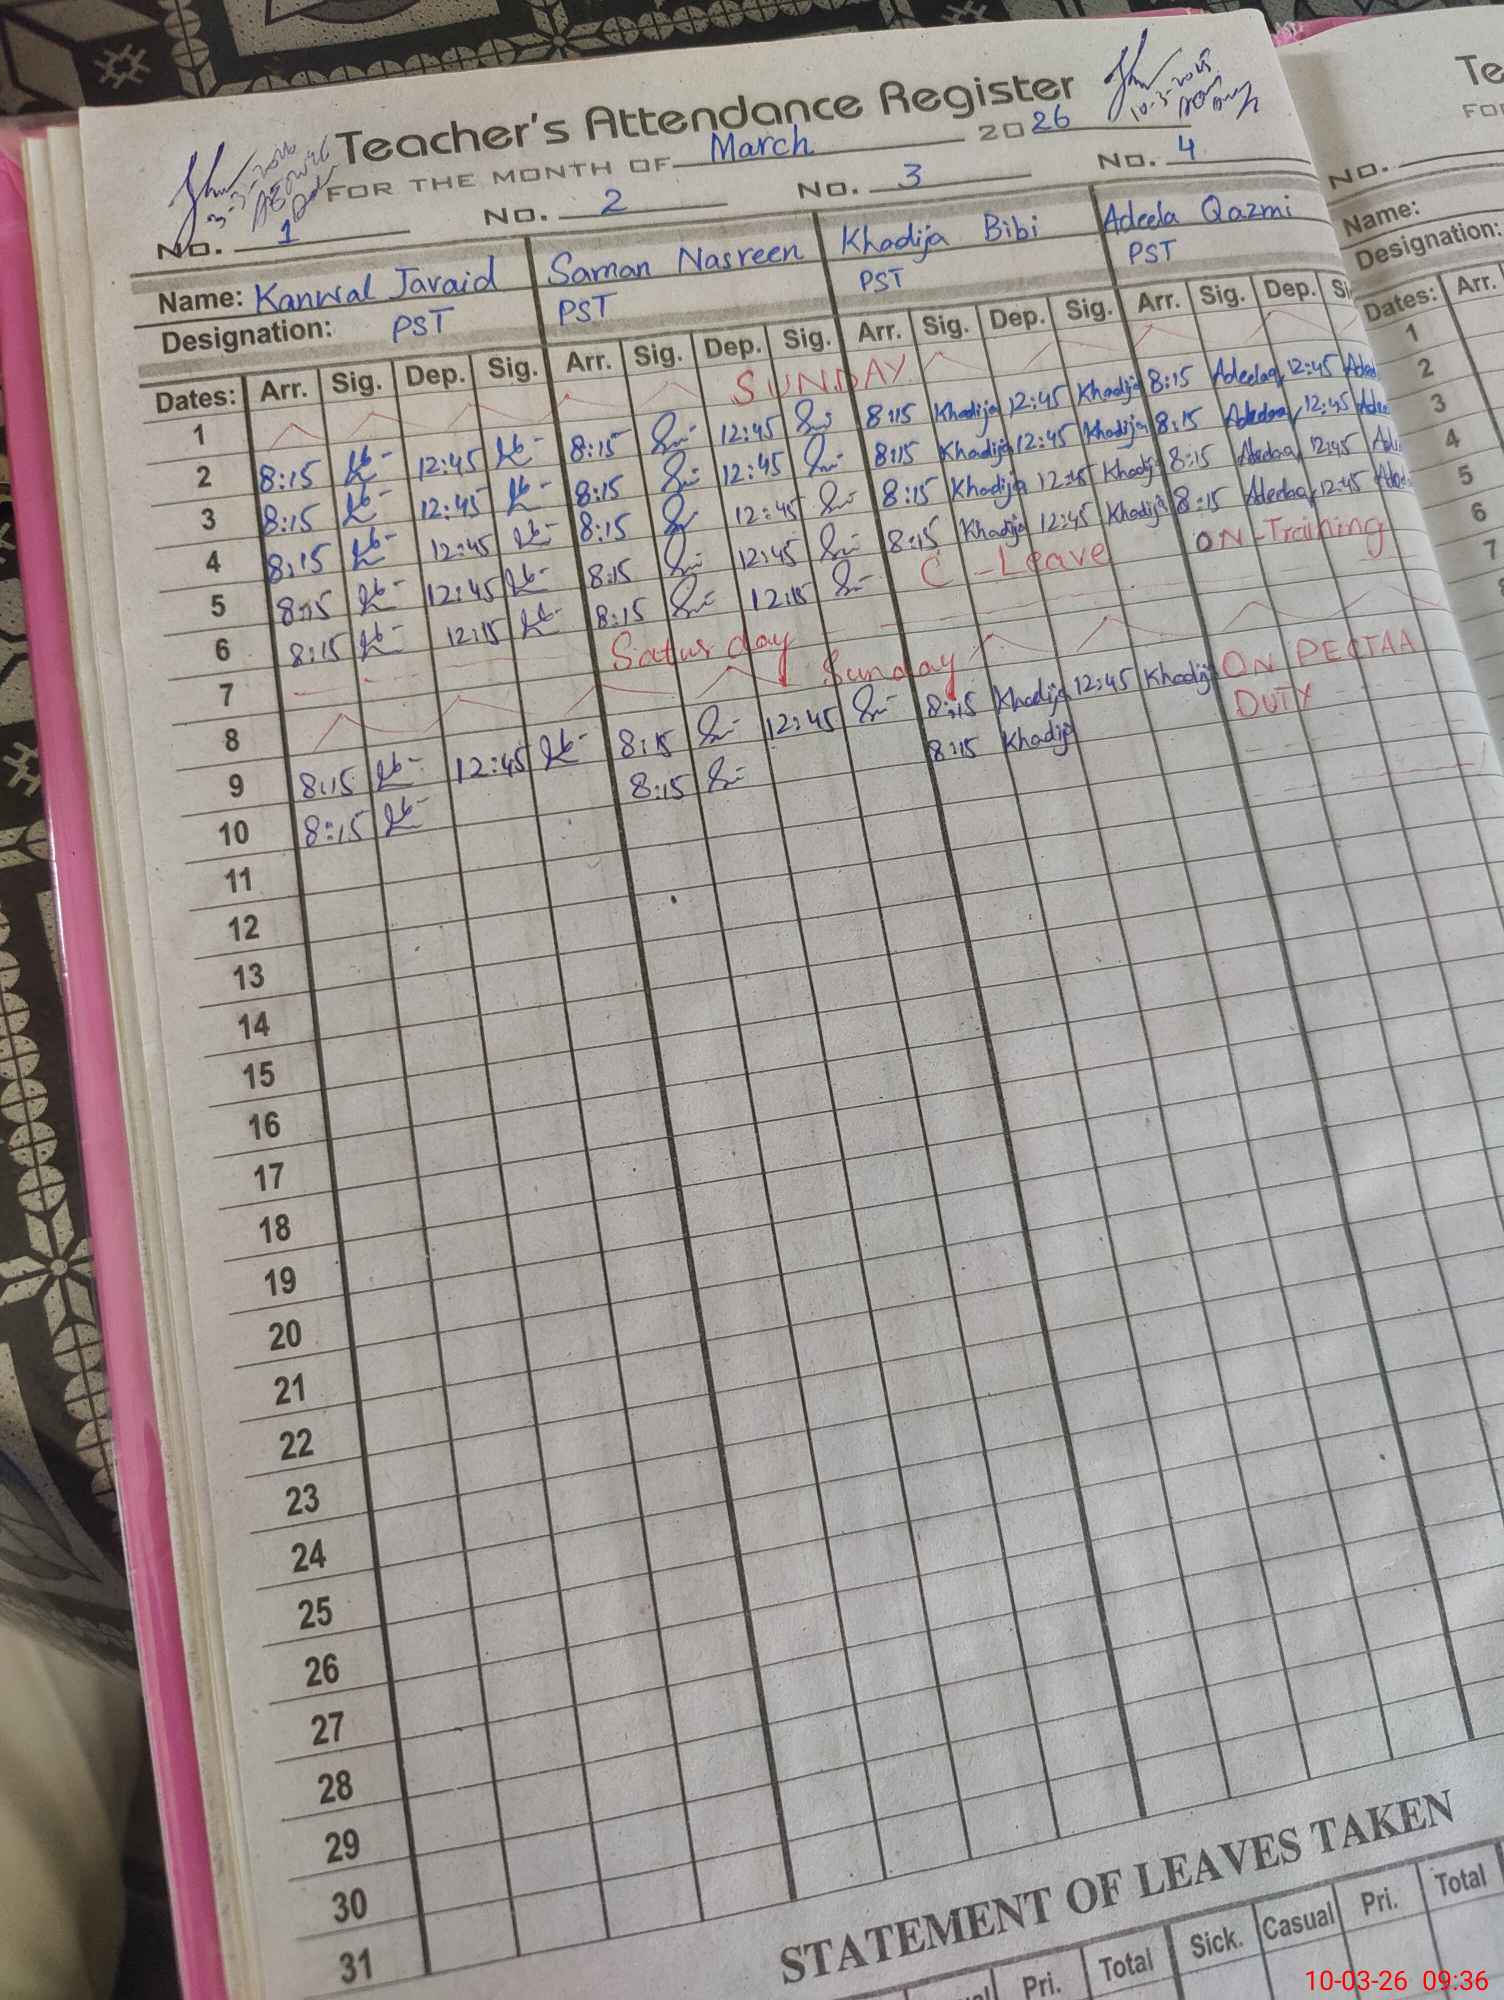 Teacher's Attendance Register
FOR THE MONTH OF March 2026
3-3-2026
10-3-2026
No. 1 No. 2 No. 3 No. 4
Name: Kanwal Javaid Saman Nasreen Khadija Bibi Adeela Qazmi
Designation: PST PST PST PST
Dates: Arr. Sig. Dep. Sig. Arr. Sig. Dep. Sig. Arr. Sig. Dep. Sig. Arr. Sig. Dep.
1 SUNDAY
2 8:15 12:45 8:15 12:45 8:15 Khadija 12:45 Khadija 8:15 Adeelaq 12:45
3 8:15 12:45 8:15 12:45 8:15 Khadija 12:45 Khadija 8:15 12:45
4 8:15 12:45 8:15 12:45 8:15 Khadija 12:45 Khadija 8:15 12:45
5 8:15 12:45 8:15 12:45 8:15 Khadija 12:45 Khadija 8:15 Adeelaq 12:45
6 8:15 12:15 8:15 12:15 C-Leave ON-Training
7 Saturday
8 Sunday
9 8:15 12:45 8:15 12:45 8:15 Khadija 12:45 Khadija ON PECTAA
10 8:15 8:15 8:15 Khadija DUTY
11
12
13
14
15
16
17
18
19
20
21
22
23
24
25
26
27
28
29
30
31
STATEMENT OF LEAVES TAKEN
Pri. Total Sick. Casual Pri. Total
No.
Name:
Designation:
Dates: Arr.
1
2
3
4
5
6
7
10-03-26 09:36